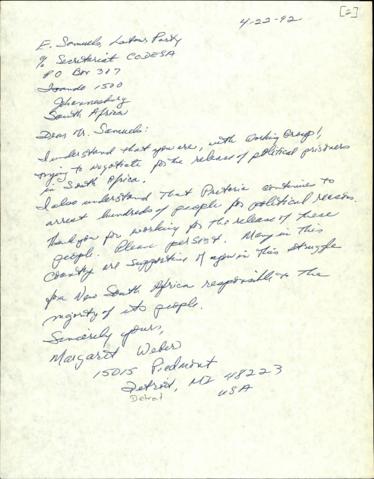 4-22-92
[2]
E. Samuels, Labour Party
% Secretariat CODESA
PO Box 307
Isando 1500
Johannesburg
South Africa
Dear Mr. Samuels:
I understand that you are, with Working Group 1,
trying to negotiate for the release of political prisoners
in South Africa.
I also understand that Pretoria continues to
arrest hundreds of people for political reasons.
Thank you for working for the release of these
people. Please persist. Many in this
country are supportive of you in this struggle
for New South Africa responsible to the
majority of its people.
Sincerely yours,
Margaret Weber
15015 Piedmont
Detroit, MI 48223
Detroit
USA